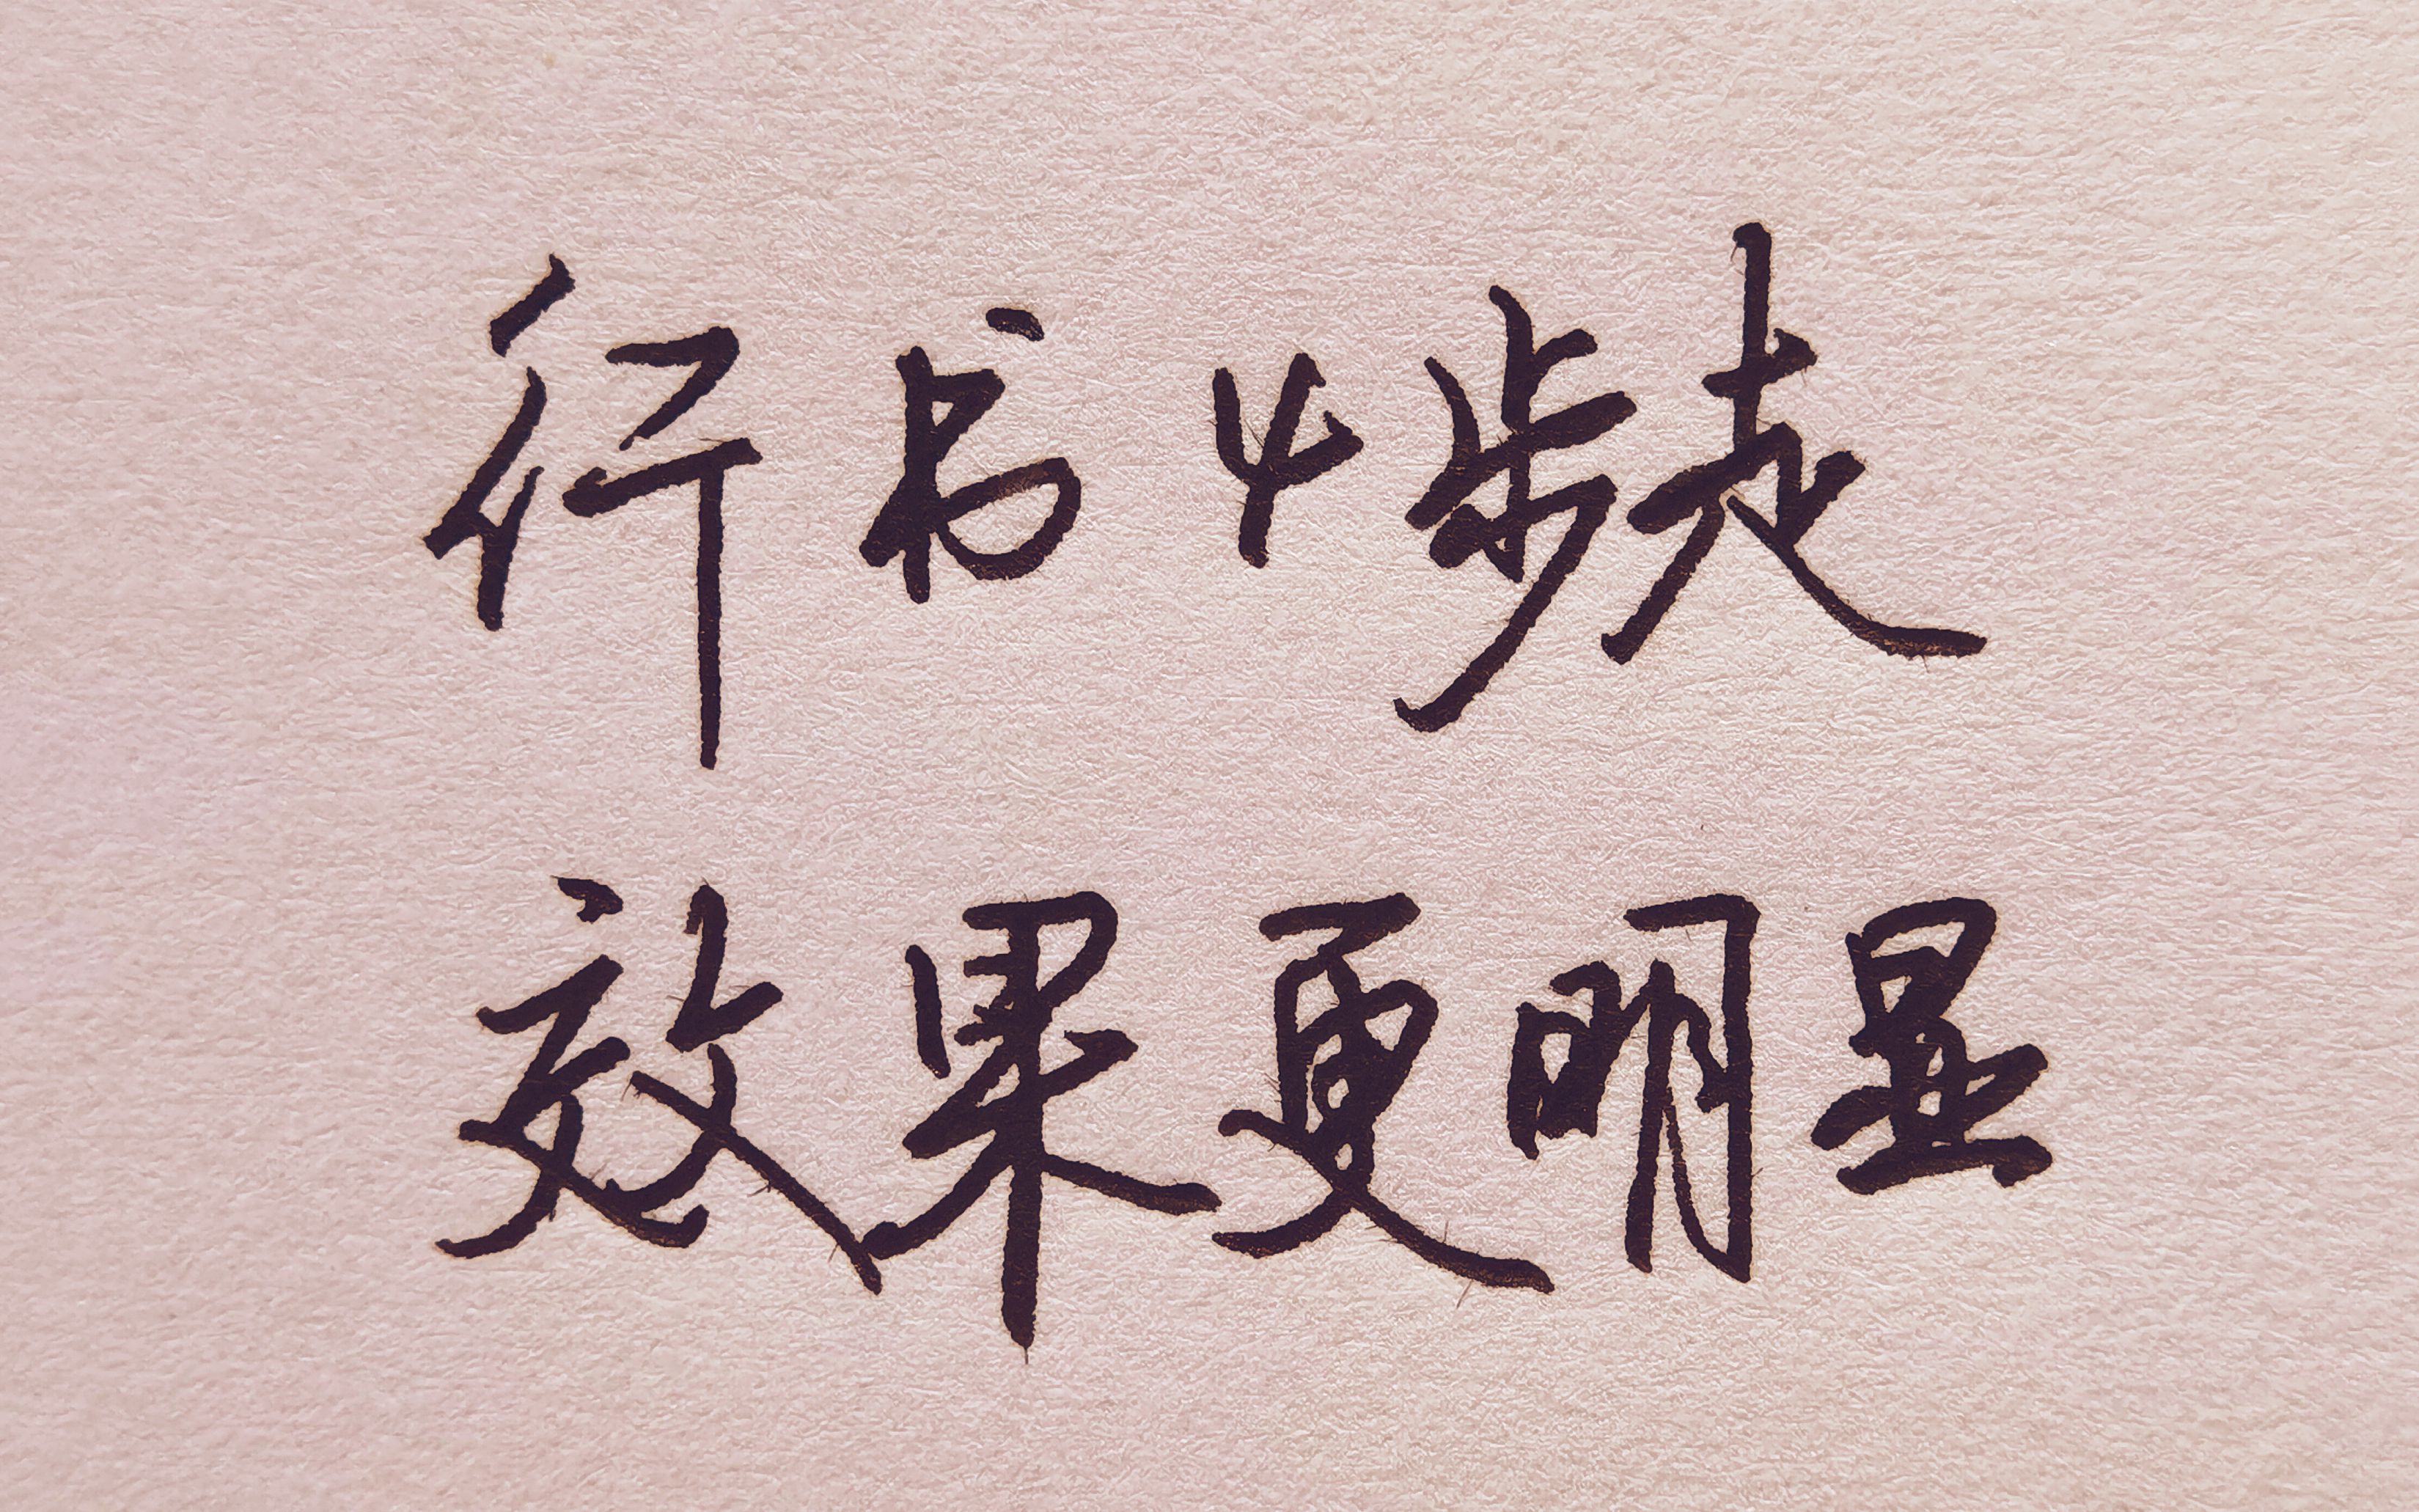 行书4步走
效果更明显